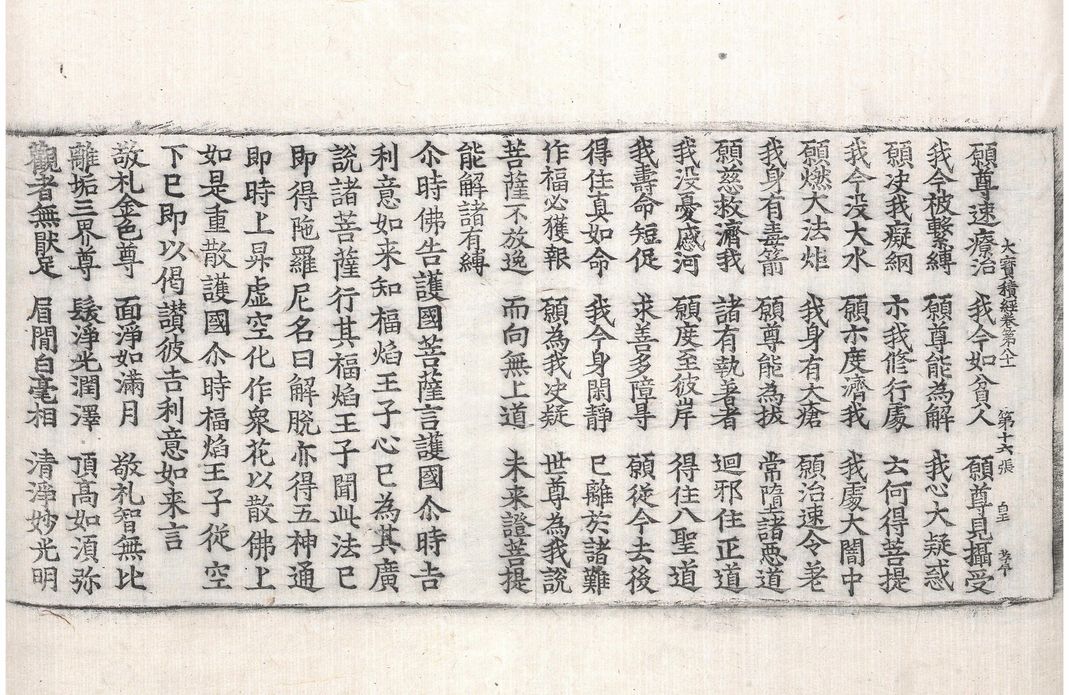 大寶積經卷第八十一 第十六張 皇
願尊速療治 我今如貧人 願尊見攝受
我今被繫縛 願尊能為解 我心大疑惑
願决我癡網 示我修行處 云何得菩提
我今没大水 願亦度濟我 我處大闇中
願燃大法炬 我身有大瘡 願治速令差
我身有毒箭 願尊能為拔 常墮諸惡道
願慈救濟我 諸有執著者 迴邪住正道
我没憂慼河 願度至彼岸 得住八聖道
我壽命短促 求善多障㝵 願從今去後
得住真如命 我今身閑靜 已離於諸難
作福必獲報 願為我决疑 世尊為我說
菩薩不放逸 而向無上道 未来證菩提
能解諸有縛
尒時佛告護國菩薩言護國尒時吉
利意如来知福焰王子心已為其廣
說諸菩薩行其福焰王子聞此法已
即得陁羅尼名曰解脫亦得五神通
即時上昇虛空化作衆花以散佛上
如是重散護國尒時福焰王子從空
下已即以偈讃彼吉利意如来言
敬礼金色尊 面淨如滿月 敬礼智無比
離垢三界尊 髮淨光潤澤 頂髙如湏弥
觀者無猒足 眉閒白毫相 清淨妙光明